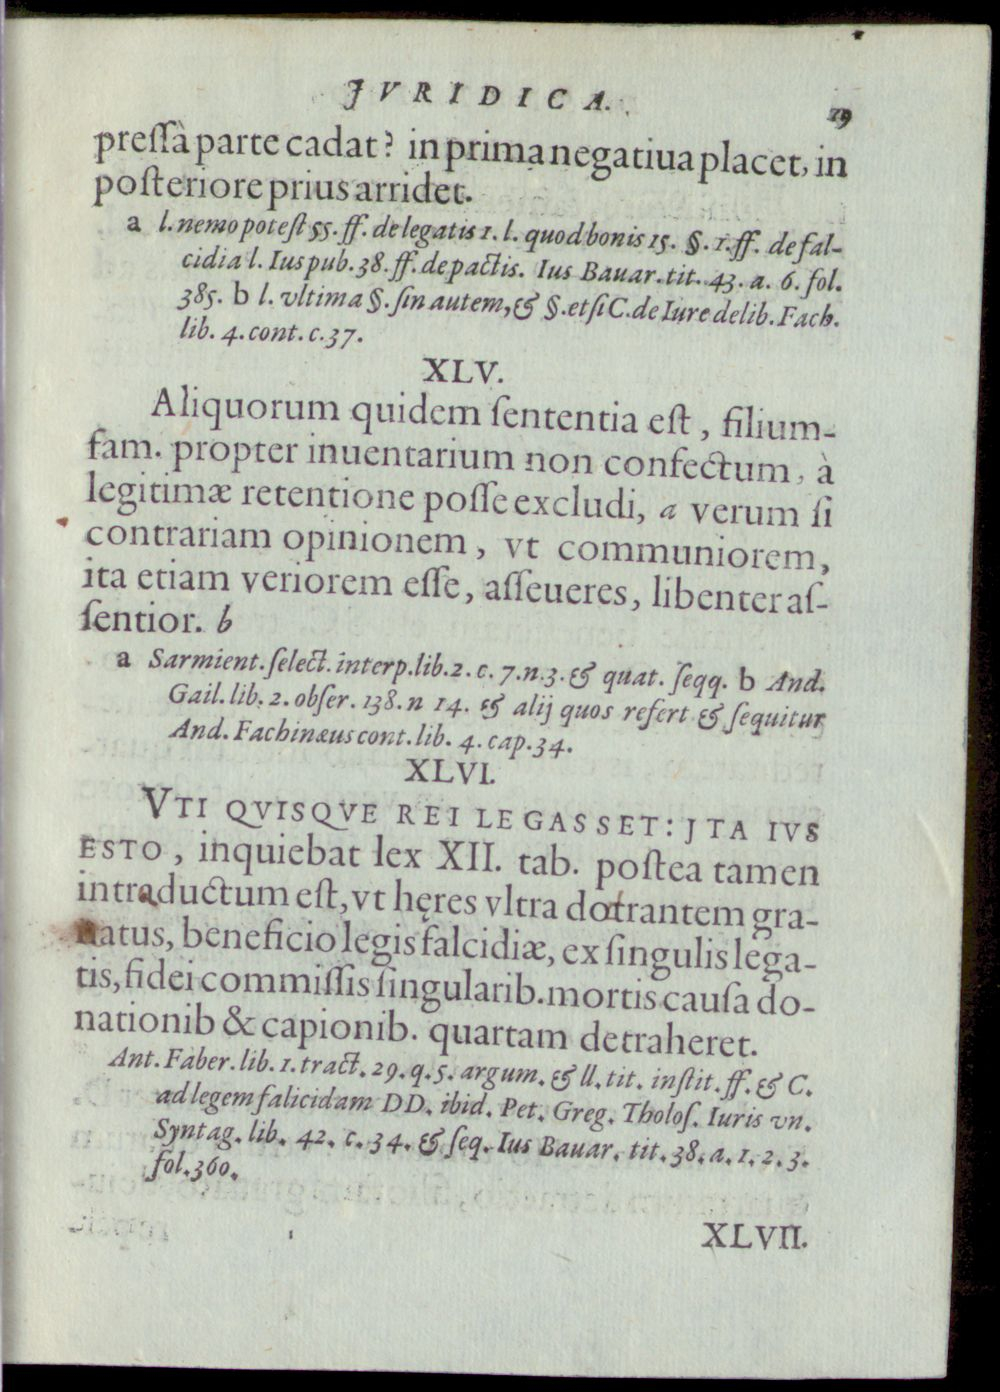 JVRIDICA. 19
preſſà parte cadat? in prima negatiua placet, in
poſteriore prius arridet.
a l. nemo poteſt 55. ff. de legatis 1. l. quod bonis 15. §. 1. ff. de fal-
cidia l. Ius pub. 38. ff. de pactis. Ius Bauar. tit. 43. a. 6. fol.
385. b l. vltima §. ſin autem, & §. et ſi C. de Iure delib. Fach.
lib. 4. cont. c. 37.
XLV.
Aliquorum quidem ſententia eſt, filium-
fam. propter inuentarium non confectum, à
legitimæ retentione poſſe excludi, a verum ſi
contrariam opinionem, vt communiorem,
ita etiam veriorem eſſe, aſſeueres, libenter aſ-
ſentior. b
a Sarmient. ſelect. interp. lib. 2. c. 7. n. 3. & quat. ſeqq. b And.
Gail. lib. 2. obſer. 138. n 14. & alij quos refert & ſequitur
And. Fachinæus cont. lib. 4. cap. 34.
XLVI.
VTI QVISQVE REI LEGASSET: JTA IVS
ESTO, inquiebat lex XII. tab. poſtea tamen
intraductum eſt, vt hęres vltra dotrantem gra-
natus, beneficio legis falcidiæ, ex ſingulis lega-
tis, fidei commiſſis ſingularib. mortis cauſa do-
nationib & capionib. quartam detraheret.
Ant. Faber. lib. 1. tract. 29. q. 5. argum. & ll. tit. inſtit. ff. & C.
ad legem falicidam DD. ibid. Pet. Greg. Tholoſ. Iuris vn.
Syntag. lib. 42. c. 34. & ſeq. Ius Bauar. tit. 38. a. 1. 2. 3.
fol. 360.
XLVII.